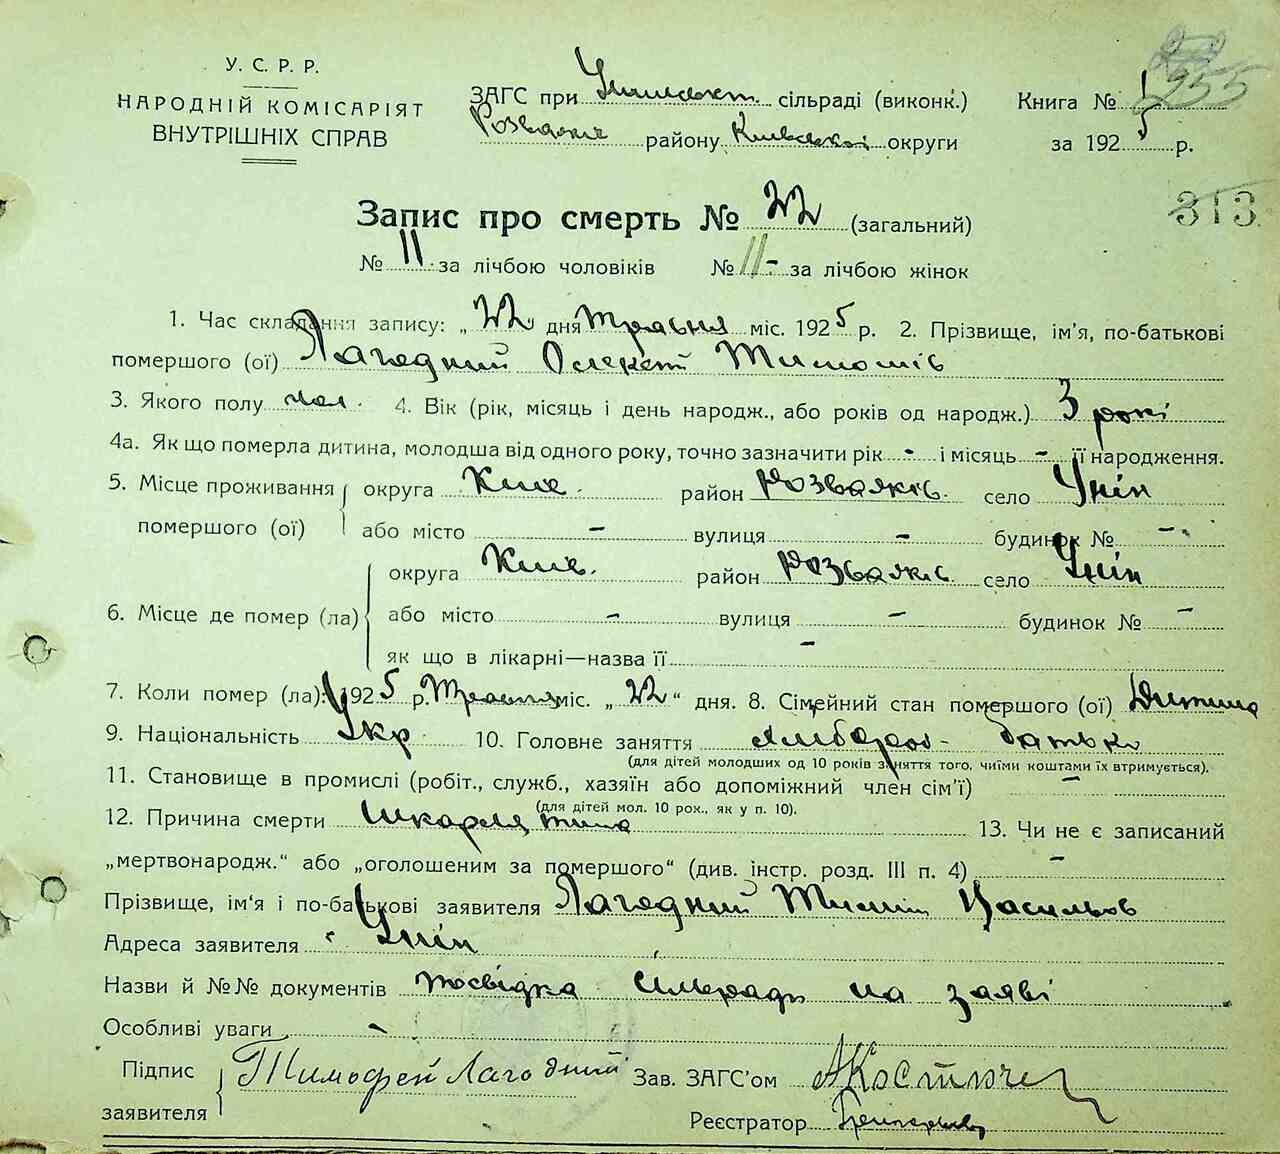 У. С. Р. Р.
НАРОДНІЙ КОМІСАРІЯТ
ВНУТРІШНІХ СПРАВ
ЗАГС при сільраді (виконк.)
району Київської округи
Книга № 1
за 1925 р.
955
313
Запис про смерть № 22 (загальний)
№ 11 за лічбою чоловіків № 11 - за лічбою жінок
1. Час складання запису: „ 22 дня Травня міс. 1925 р. 2. Прізвище, ім'я, по-батькові
помершого (ої) Лагодний Олексій Тимошів
3. Якого полу чол. 4. Вік (рік, місяць і день народж., або років од народж.) 3 рокі
4а. Як що померла дитина, молодша від одного року, точно зазначити рік - і місяць - її народження.
5. Місце проживання округа Київ. район Розважів. село Унін
помершого (ої) або місто - вулиця - будинок № -
округа Київ. район Розважів. село Унін
6. Місце де помер (ла) або місто - вулиця - будинок № -
як що в лікарні—назва її -
7. Коли помер (ла): 1925 р. Травня міс. „ 22 “ дня. 8. Сімейний стан помершого (ої) Дитина
9. Національність Укр. 10. Головне заняття хлібороб - батько
(для дітей молодших од 10 років заняття того, чиїми коштами їх втримується).
11. Становище в промислі (робіт., служб., хазяїн або допоміжний член сім'ї) -
(для дітей мол. 10 рок., як у п. 10).
12. Причина смерти шкарлятина 13. Чи не є записаний
„мертвонародж.“ або „оголошеним за помершого“ (див. інстр. розд. III п. 4) -
Прізвище, ім'я і по-батькові заявителя Лагодний Тиміш Васильов
Адреса заявителя Унін
Назви й №№ документів посвідка Сільради на заяві
Особливі уваги -
Підпис заявителя Тимофей Лагодний Зав. ЗАГС'ом
Реєстратор